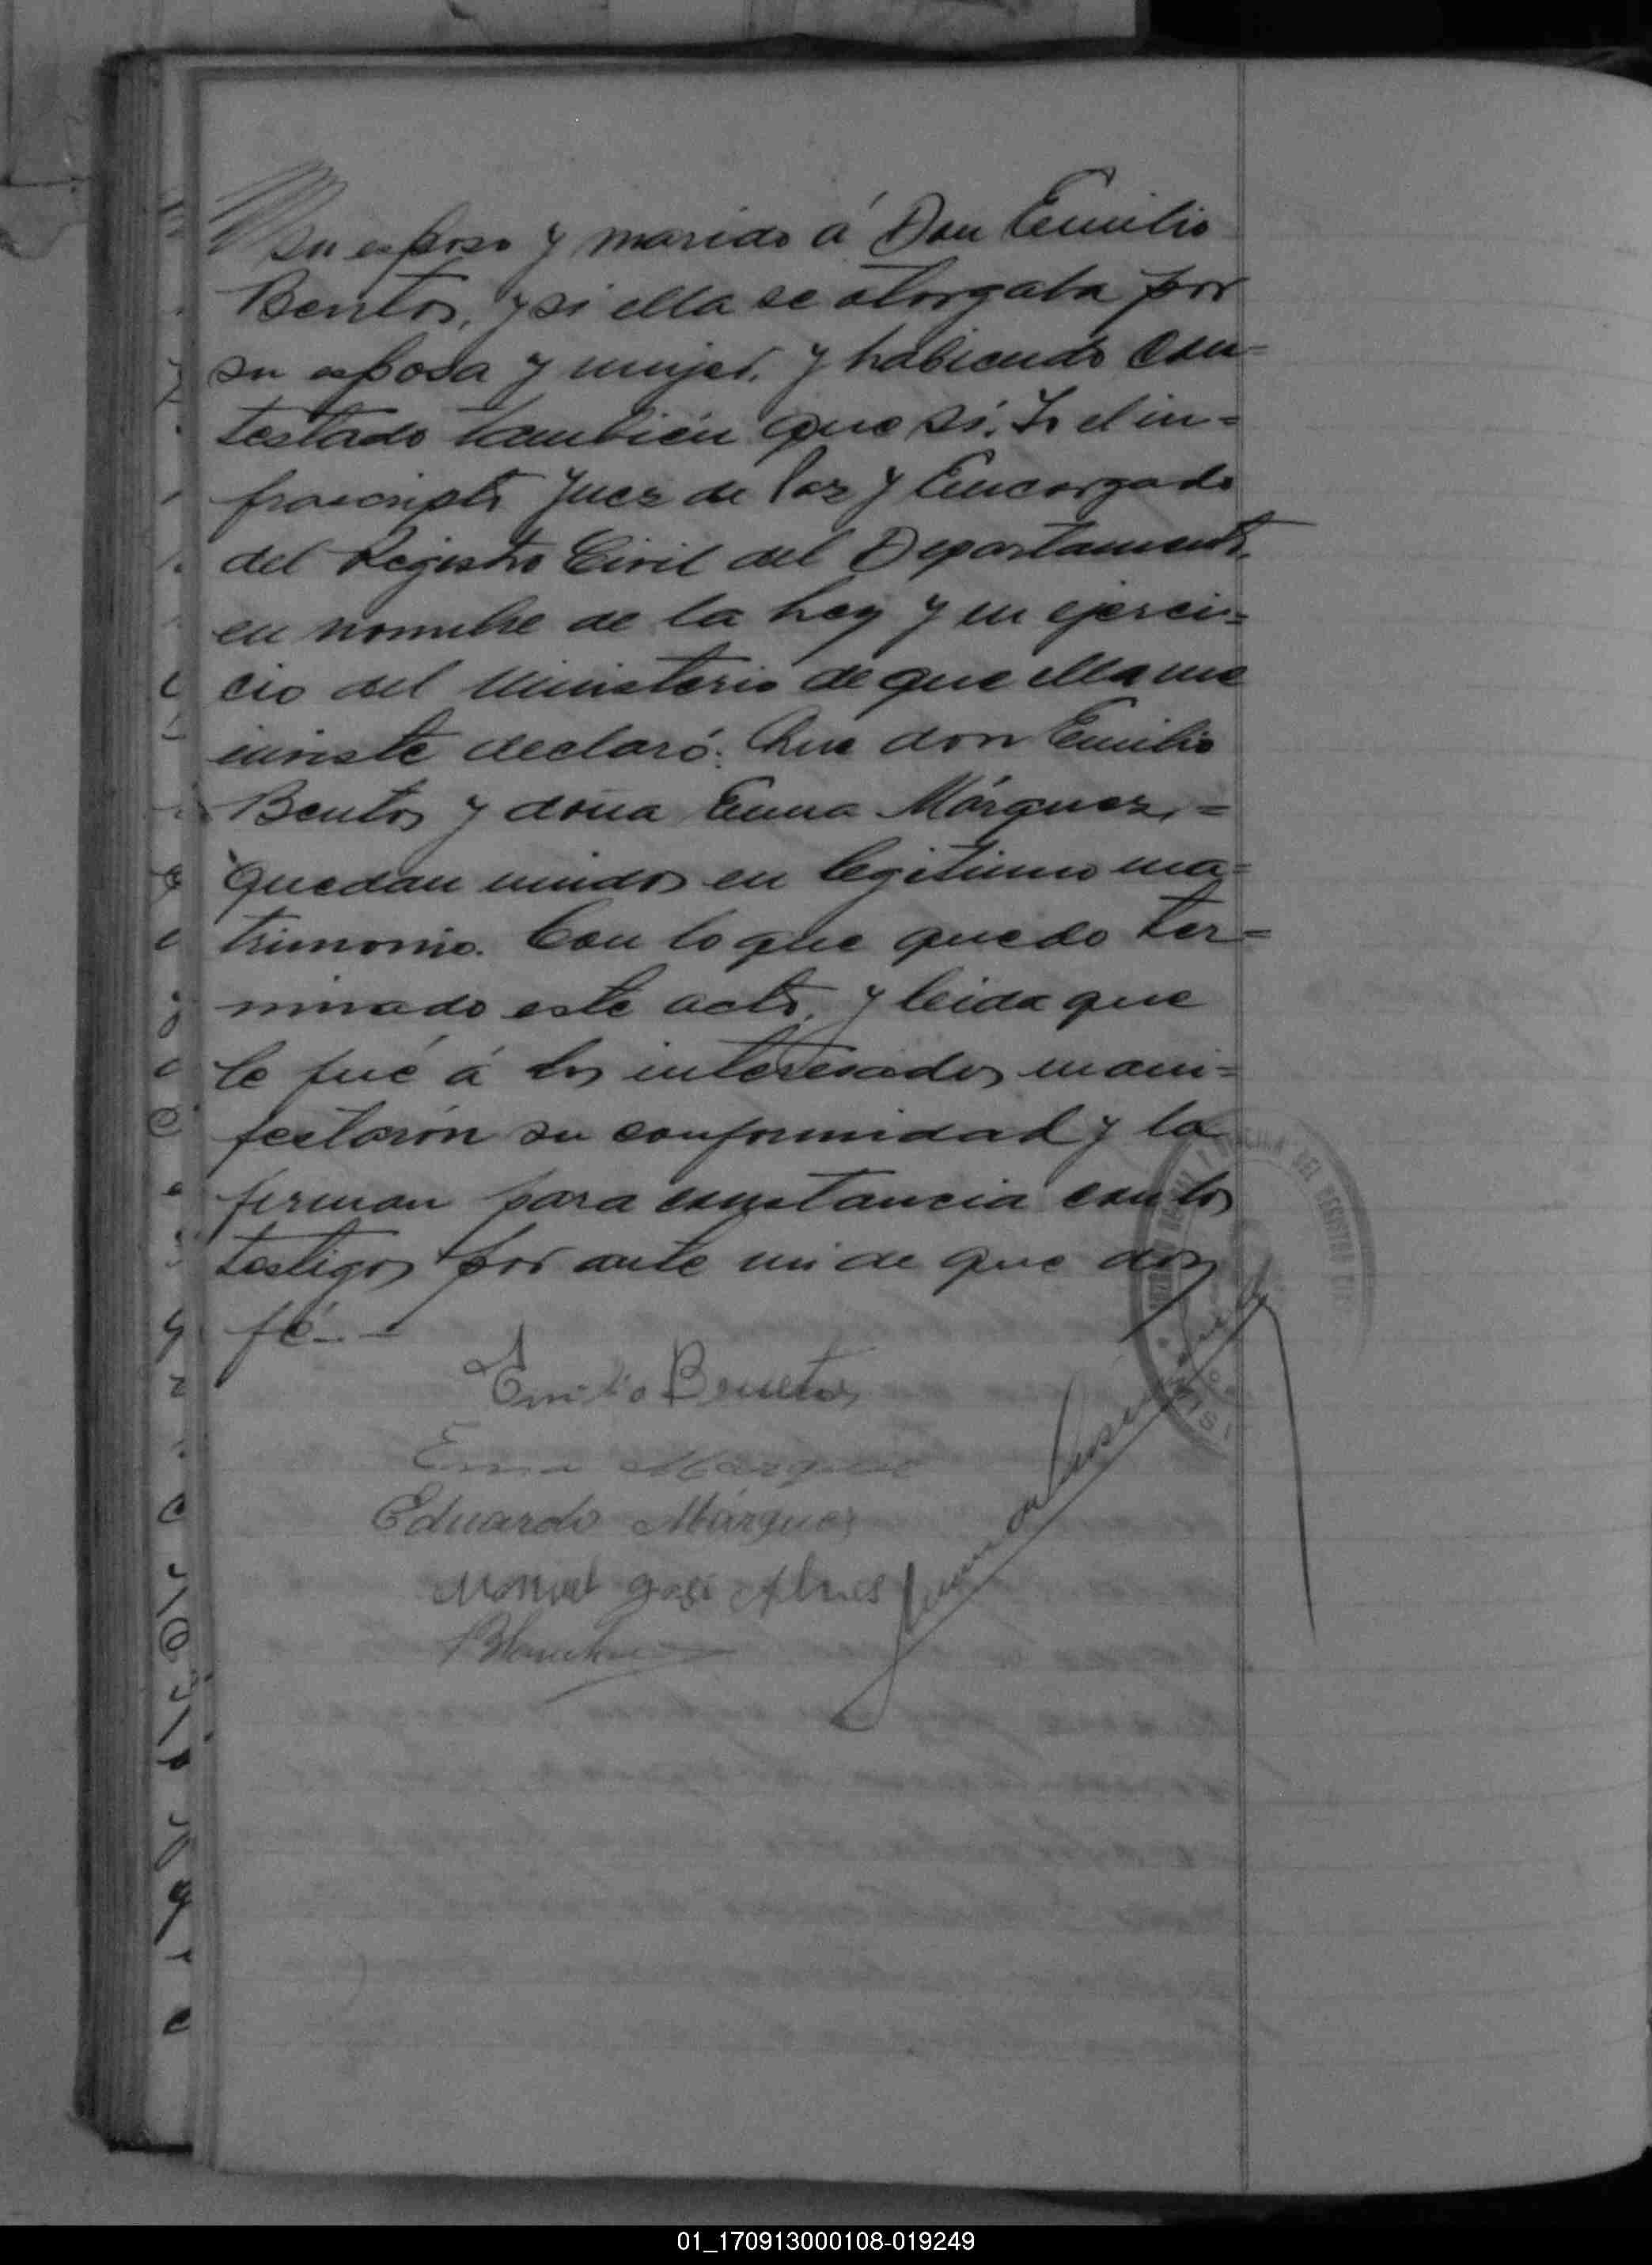 su esposo y marido á Don Emilio
Bentos, y si ella se otorgaba por
su esposa y mujer. y habiendo con=
testado tambien que si. Yo el in=
frascripto Juez de Paz y Encargado
del Registro Civil del Departamento.
en nombre de la Ley y en ejerci=
cio del Ministerio de que ella me
inviste declaró: Que don Emilio
Bentos y doña Emma Márquez,=
quedan unidos en legitimo ma=
trimonio. Con lo que quedo ter=
minado este acto, y leida que
le fué á los interesados mani=
festarón su conformidad y la
firman para constancia con los
testigos por ante mi de que doy
fé.—
Emilio Bentos
Emma Márquez
Eduardo Márquez
Manuel José Alves
DEL REGISTRO CIVIL
01_170913000108-019249